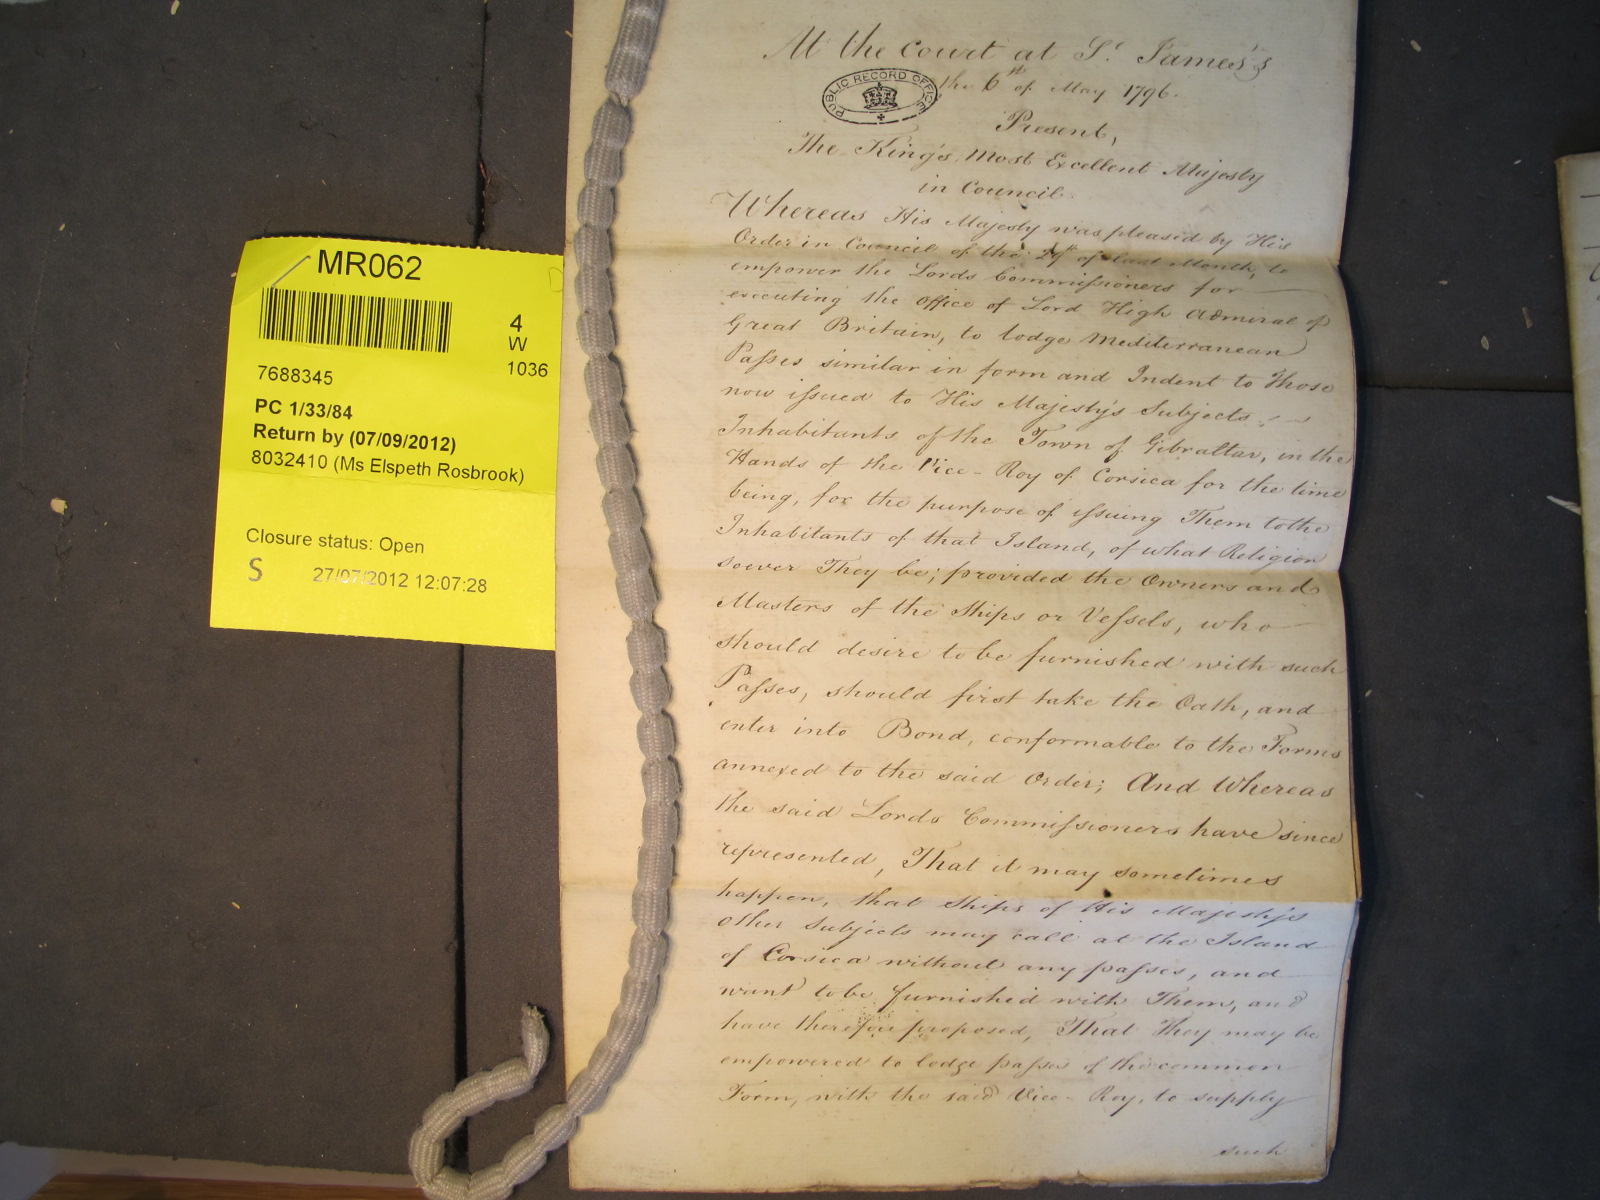 MR062
4
W
1036
7688345
PC 1/33/84
Return by (07/09/2012)
8032410 (Ms Elspeth Rosbrook)
Closure status: Open
S
27/07/2012 12:07:28
At the Court at St. James's
PUBLIC RECORD OFFICE
the 6th of May 1796.
Present,
The King's Most Excellent Majesty
in Council.
Whereas His Majesty was pleased by His
Order in Council of the of last Month, to
empower the Lords Commiſsioners for
executing the Office of Lord High Admiral of
Great Britain, to lodge Mediterranean
Paſses similar in form and Indent to Those
now iſsued to His Majesty's Subjects
Inhabitants of the Town of Gibraltar, in the
Hands of the Vice-Roy of Corsica for the time
being, for the purpose of iſsuing Them to the
Inhabitants of that Island, of what Religion
soever They be; provided the Owners and
Masters of the Ships or Veſsels, who
should desire to be furnished with such
Paſses, should first take the Oath, and
enter into Bond, conformable to the Forms
annexed to the said Order; And Whereas
the said Lords Commiſsioners have since
represented, That it may sometimes
happen, that Ships of His Majesty's
other Subjects may call at the Island
of Corsica without any paſses, and
want to be furnished with Them, and
have therefore proposed, That They may be
empowered to lodge paſses of the common
Form, with the said Vice-Roy, to supply
such